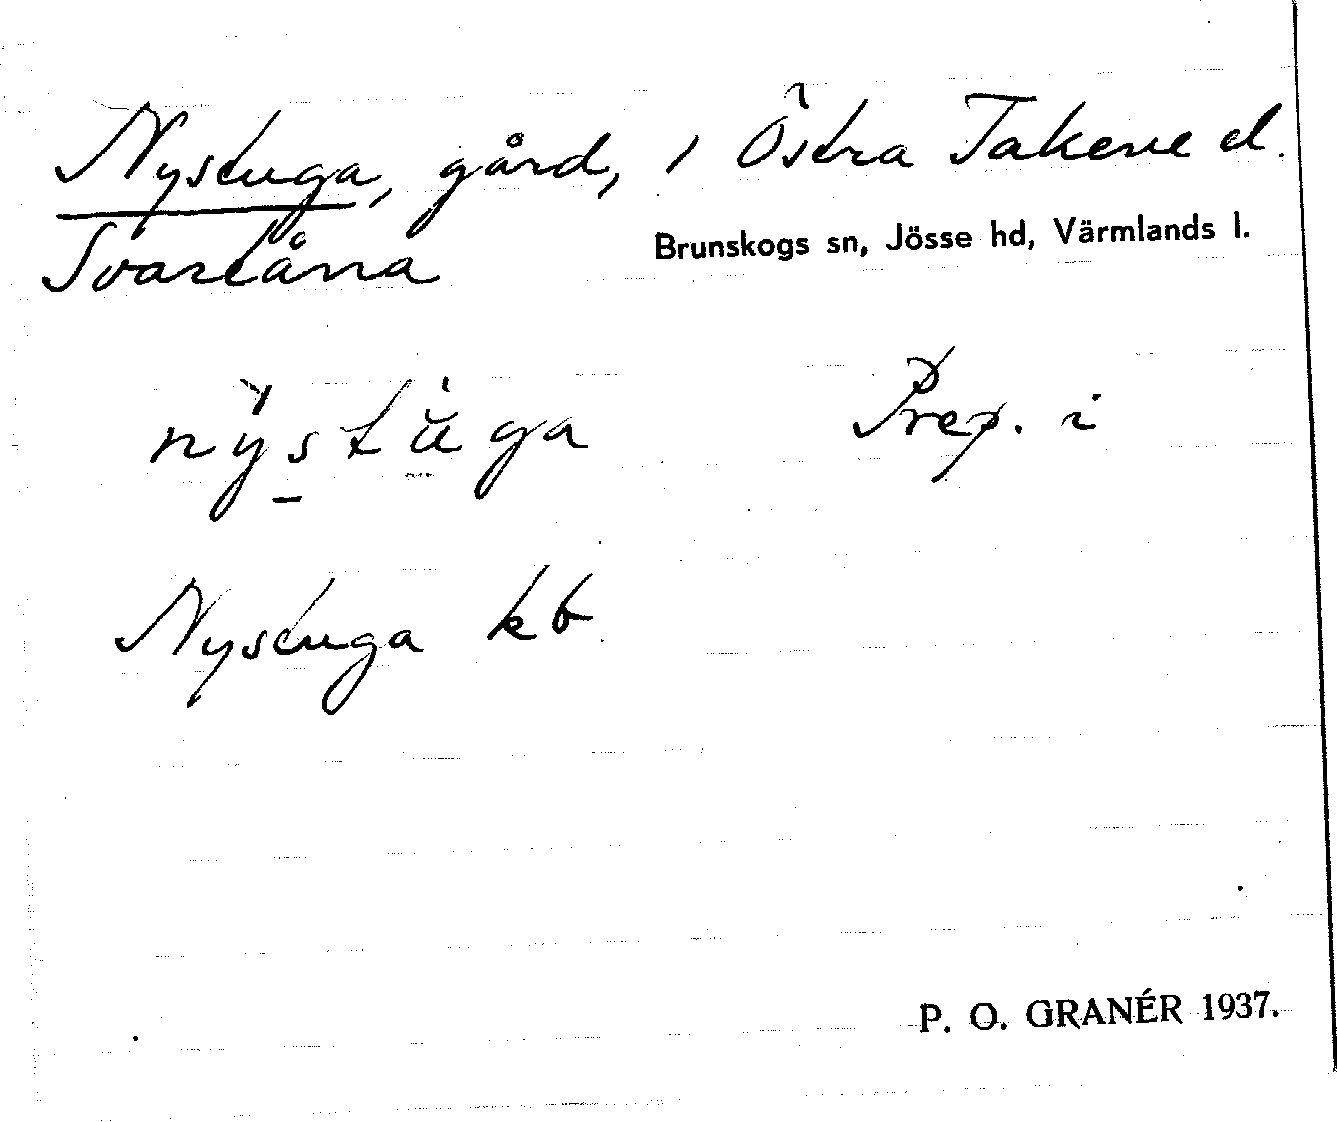 Nystuga, gård, i Östra Takene el.
Svartåna
Brunskogs sn, Jösse hd, Värmlands l.
nỳstùga Prep. i
Nystuga kb
P. O. GRANÉR 1937.